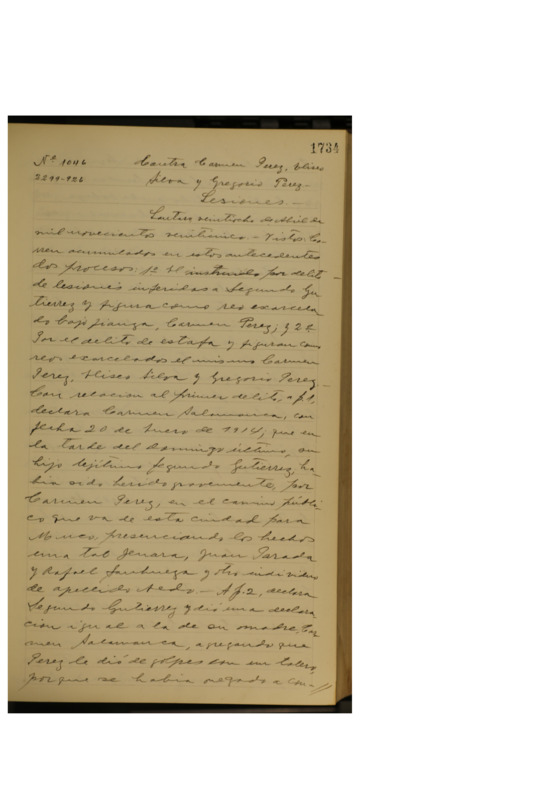 1734
Nº 1046 Contra Carmen Perez, Eliseo
2299-926 Silva y Gregorio Perez.
Lesiones.-
Lautaro veintiocho de Abril de
mil novecientos veintiuno.- Vistos: Co-
rren acumulados en estos antecedentes
dos procesos: 1º El instruido por delito
de lesiones inferidas a Segundo Gu-
tierrez y figura como reo excarcela-
do bajo fianza, Carmen Perez; y 2º
Por el delito de estafa y figuran como
reos excarcelados el mismo Carmen
Perez, Eliseo Silva y Gregorio Perez.-
Con relacion al primer delito, a f. 1,
declara Carmen Salamanca, con
fecha 20 de Enero de 1914, que en
la tarde del Domingo último, su
hijo lejítimo Segundo Gutierrez, ha-
bia sido herido gravemente, por
Carmen Perez, en el camino públi-
co que va de esta ciudad para
Muco, presenciando los hechos
una tal Jenara, Juan Parada
y Rafael Sanhueza y otro individuo
de apellido - A f. 2, declara
Segundo Gutierrez y dió una declara-
cion igual a la de su madre, Car-
men Salamanca, agregando que
Perez le dió de golpes con un
porque se habia negado a con-//